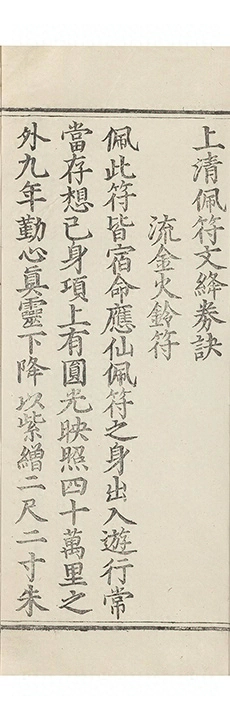 上清佩符文絳券訣
流金火鈴符
佩此符皆宿命應仙佩符之身出入遊行常
當存想己身項上有圓光映照四十萬里之
外九年勤心眞靈下降以紫繒二尺二寸朱